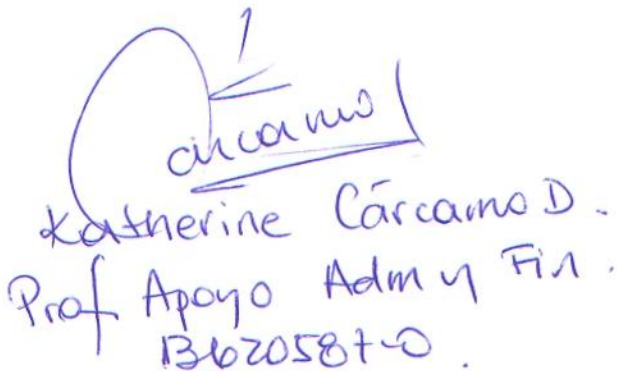 Cárcamo
Katherine Cárcamo D.
Prof Apoyo Adm y Fin.
13620587-0.